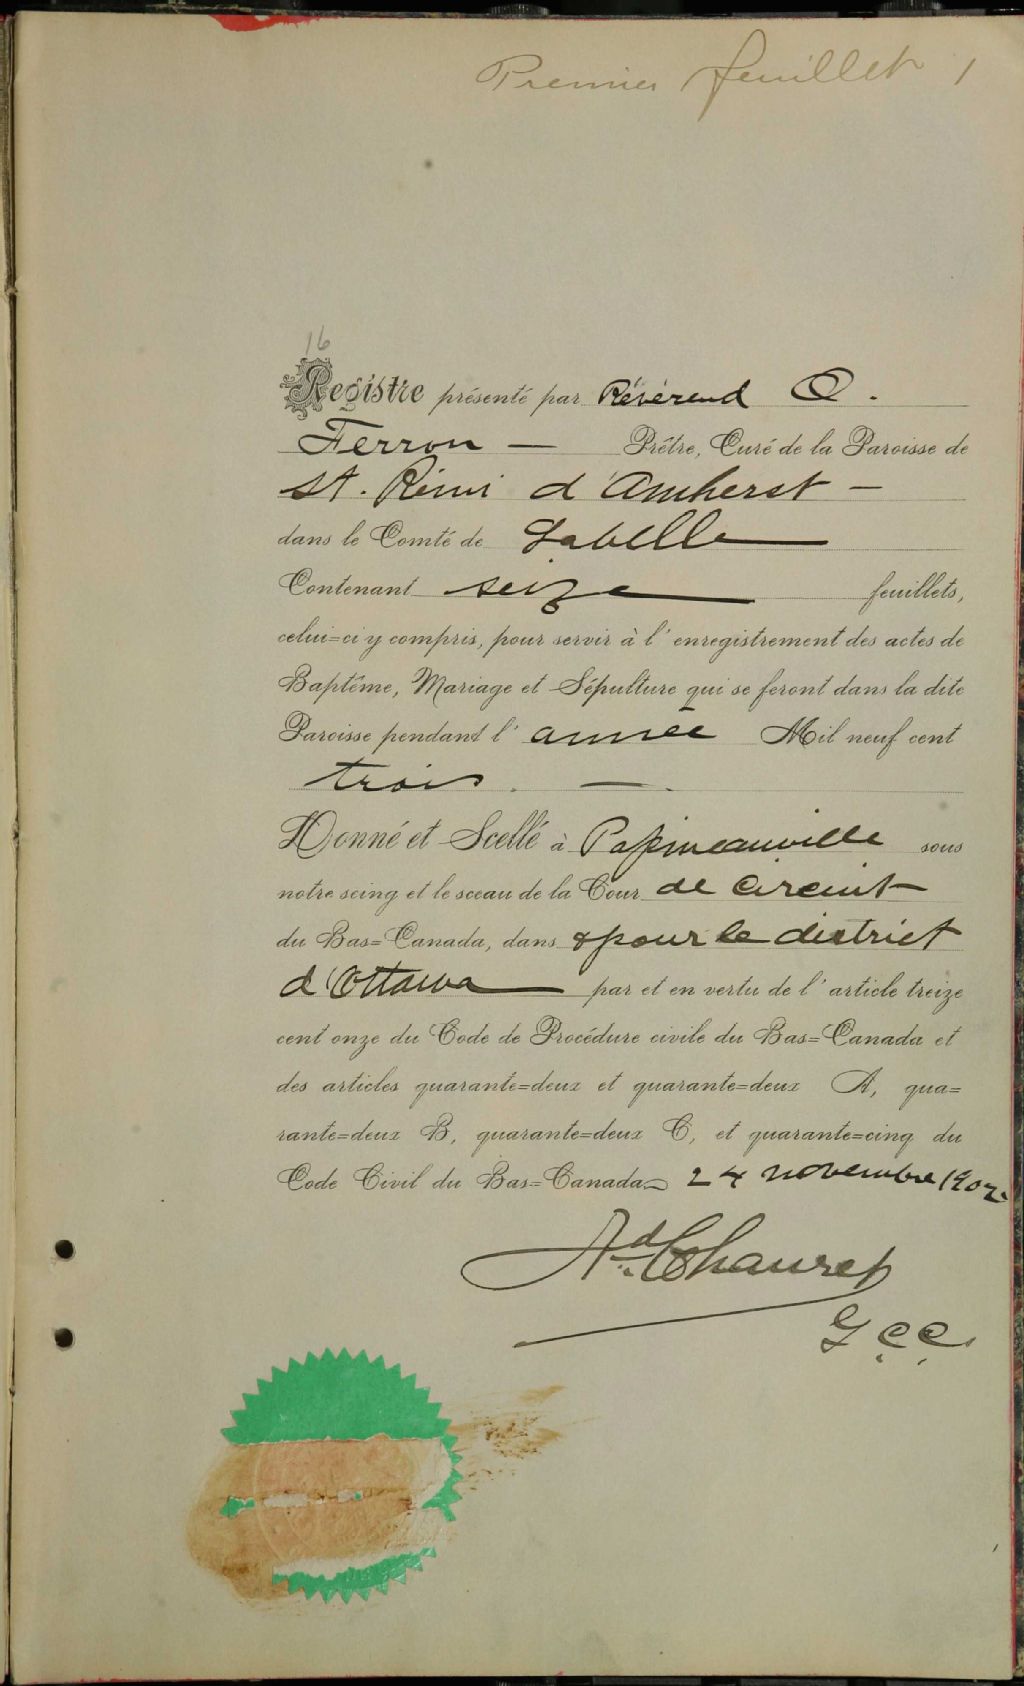 Premier feuillet 1
16
Registre présenté par Révérend O.
Ferron — Prêtre, Curé de la Paroisse de
St. Rémi d'Amherst —
dans le Comté de Labelle
Contenant seize feuillets,
celui=ci y compris, pour servir à l'enregistrement des actes de
Baptême, Mariage et Sépulture qui se feront dans la dite
Paroisse pendant l'année Mil neuf cent
trois. —
Donné et Scellé à Papineauville sous
notre seing et le sceau de la Cour de Circuit
du Bas=Canada, dans & pour le district
d'Ottawa par et en vertu de l'article treize
cent onze du Code de Procédure civile du Bas=Canada et
des articles quarante=deux et quarante=deux A, qua=
rante=deux B, quarante=deux C, et quarante=cinq du
Code Civil du Bas=Canada— 24 novembre 1902
Ad. Chauret
G.C.C.